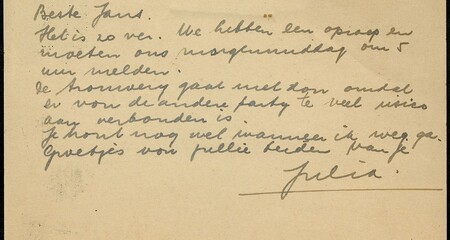 Beste Jans.
Het is zo ver. We hebben een oproep en
moeten ons morgenmiddag om 5
uur melden.
De trouwerij gaat niet door omdat
er van de andere party te veel risies
aan verbonden is.
Je hoort nog wel wanneer ik weg ga.
Groetjes van jullie beiden van je
Julia.